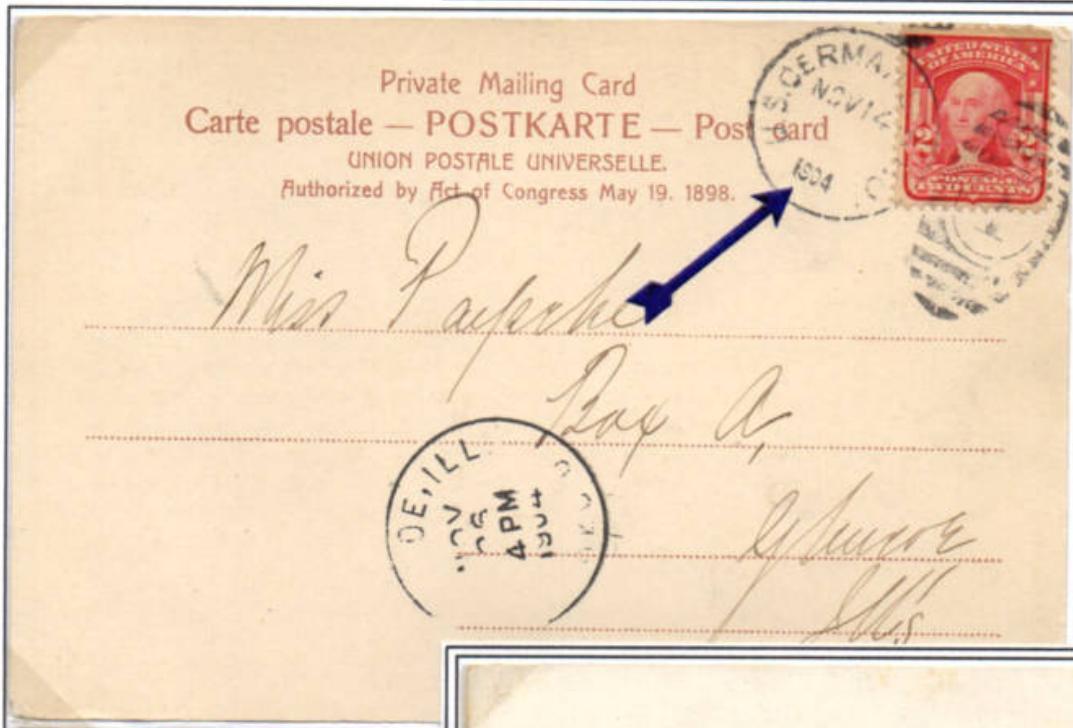 Private Mailing Card
Carte postale — POSTKARTE — Post card
UNION POSTALE UNIVERSELLE.
Authorized by Act of Congress May 19. 1898.
U.S. GERMA
NOV 14
1904
UNITED STATES
OF AMERICA
2 2
POSTAGE
TWO CENTS
Miss
Box A,
Glencoe
Ills
OE, ILL.
NOV
4 PM
1904